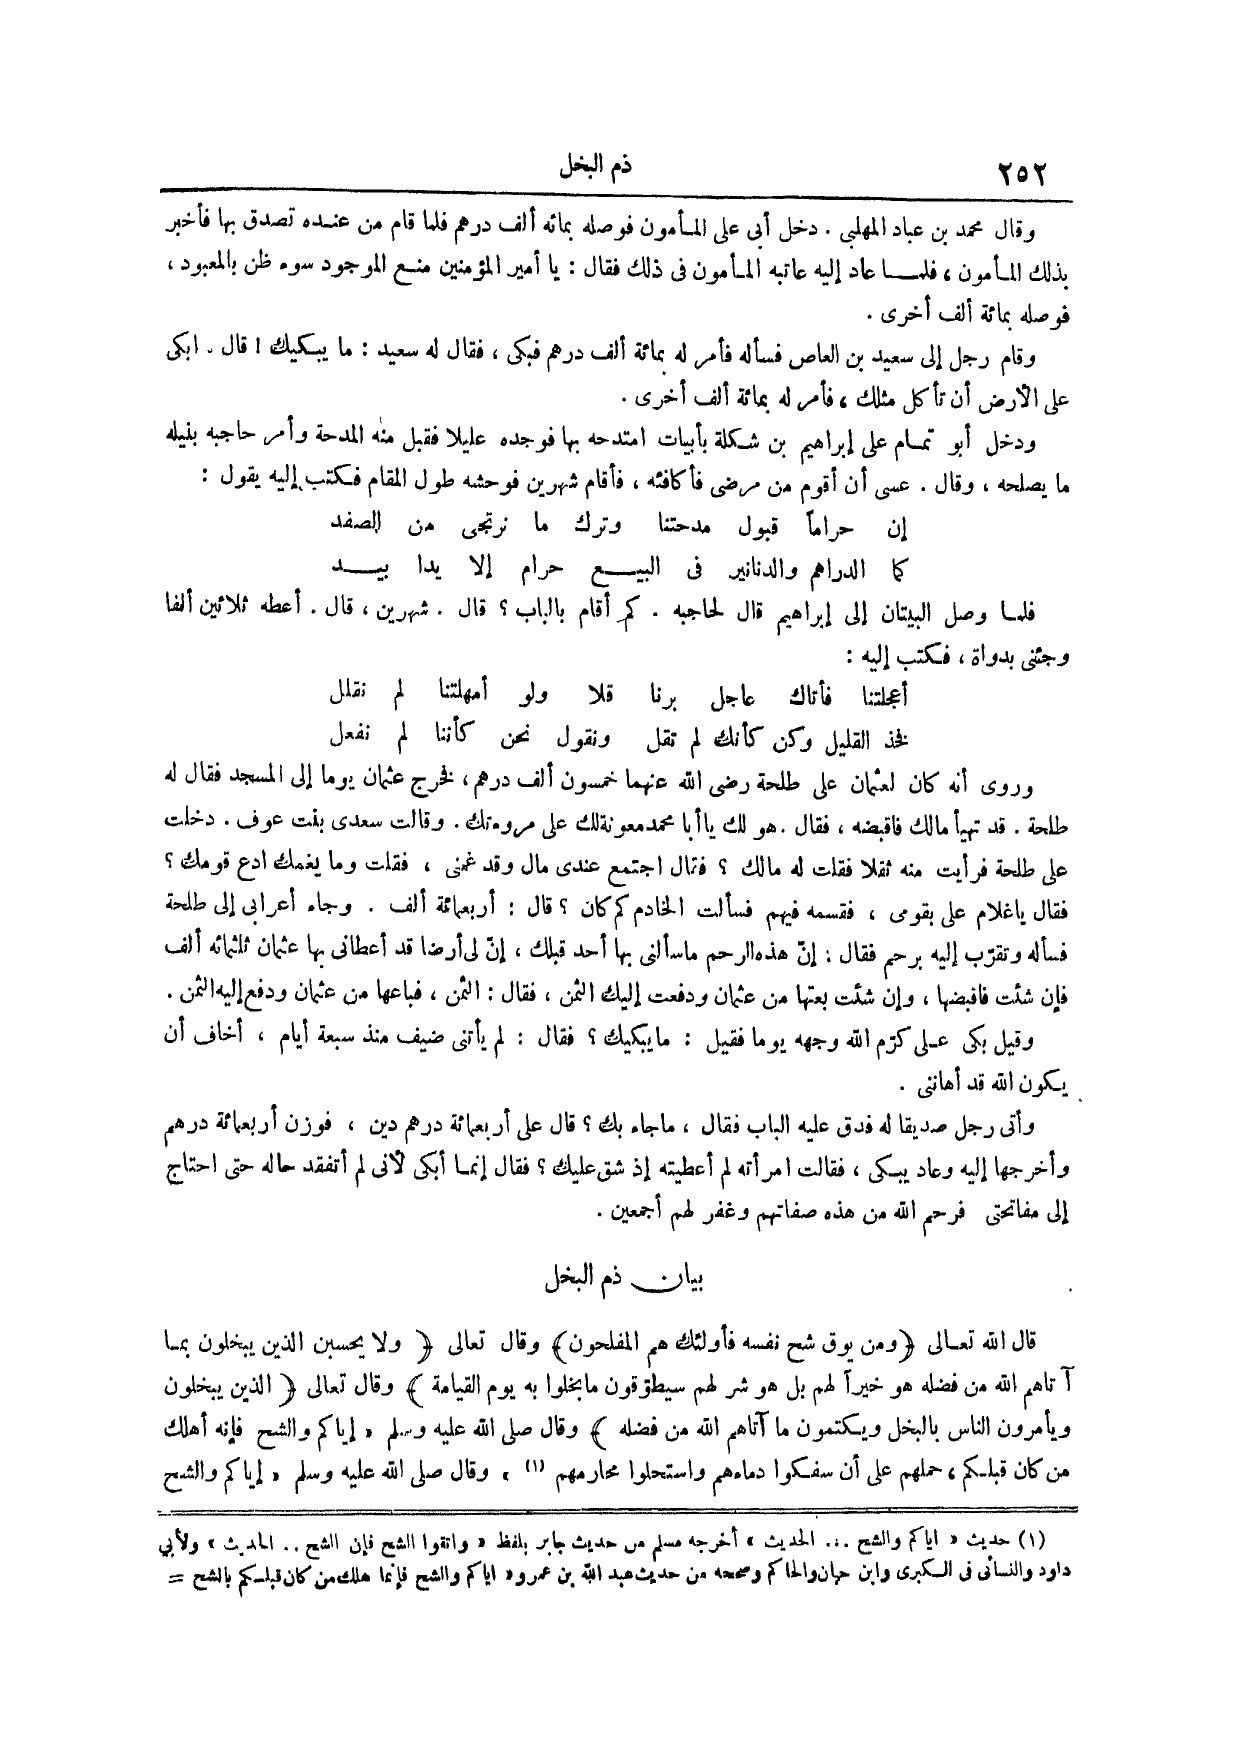 ٢٥٢
ذم البخل
وقال محمد بن عباد المهلبي . دخل أبى على المأمون فوصله بمائه ألف درهم فلما قام من عنده تصدق بها فأخبر
بذلك المأمون ، فلما عاد إليه عاتبه المأمون فى ذلك فقال : يا أمير المؤمنين منع الموجود سوء ظن بالمعبود ،
فوصله بمائة ألف أخرى .
وقام رجل إلى سعيد بن العاص فسأله فأمر له بمائة ألف درهم فبكى ، فقال له سعيد : ما يبكيك ! قال . ابكى
على الأرض أن تأكل مثلك ، فأمر له بمائة ألف أخرى .
ودخل أبو تمام على إبراهيم بن شكلة بأبيات امتدحه بها فوجده عليلا فقبل منه المدحة وأمر حاجبه بنيله
ما يصلحه ، وقال . عسى أن أقوم من مرضى فأكافئه ، فأقام شهرين فوحشه طول المقام فكتب إليه يقول :
إن حراماً قبول مدحتنا وترك ما نرتجى من الصفد
كما الدراهم والدنانير فى البيع حرام إلا يدا بيد
فلما وصل البيتان إلى إبراهيم قال لحاجبه . كم أقام بالباب ؟ قال . شهرين ، قال . أعطه ثلاثين ألفا
وجئنى بدواة ، فكتب إليه :
أعجلتنا فأتاك عاجل برنا قلا ولو أمهلتنا لم نقلل
فخذ القليل وكن كأنك لم تقل ونقول نحن كأننا لم نفعل
وروى أنه كان لعثمان على طلحة رضى الله عنهما خمسون ألف درهم ، فخرج عثمان يوما إلى المسجد فقال له
طلحة . قد تهيأ مالك فاقبضه ، فقال . هو لك يا أبا محمد معونة لك على مروءتك . وقالت سعدى بنت عوف . دخلت
على طلحة فرأيت منه ثقلا فقلت له مالك ؟ فقال اجتمع عندى مال وقد غمنى ، فقلت وما يغمك ادع قومك ؟
فقال ياغلام على بقومى ، فقسمه فيهم فسألت الخادم كم كان ؟ قال : أربعمائة ألف . وجاء أعرابى إلى طلحة
فسأله وتقرّب إليه برحم فقال : إنّ هذه الرحم ماسألنى بها أحد قبلك ، إنّ لى أرضا قد أعطانى بها عثمان ثلثمائه ألف
فإن شئت فاقبضها ، وإن شئت بعتها من عثمان ودفعت إليك الثمن ، فقال : الثمن ، فباعها من عثمان ودفع إليه الثمن .
وقيل بكى على كرّم الله وجهه يوما فقيل : مايبكيك ؟ فقال : لم يأتنى ضيف منذ سبعة أيام ، أخاف أن
يكون الله قد أهاننى .
وأتى رجل صديقا له فدق عليه الباب فقال ، ماجاء بك ؟ قال على أربعمائة درهم دين ، فوزن أربعمائة درهم
وأخرجها إليه وعاد يبكى ، فقالت امرأته لم أعطيته إذ شق عليك ؟ فقال إنما أبكى لأنى لم أتفقد حاله حتى احتاج
إلى مفاتحتى فرحم الله من هذه صفاتهم وغفر لهم أجمعين .
بيان ذم البخل
قال الله تعالى ﴿ومن يوق شح نفسه فأولئك هم المفلحون﴾ وقال تعالى ﴿ ولا يحسبن الذين يبخلون بما
آتاهم الله من فضله هو خيراً لهم بل هو شر لهم سيطوّقون مابخلوا به يوم القيامة ﴾ وقال تعالى ﴿ الذين يبخلون
ويأمرون الناس بالبخل ويكتمون ما آتاهم الله من فضله ﴾ وقال صلى الله عليه وسلم « إياكم والشح فإنه أهلك
من كان قبلكم ، حملهم على أن سفكوا دماءهم واستحلوا محارمهم (١) » وقال صلى الله عليه وسلم « إياكم والشح
(١) حديث « اياكم والشح ... الحديث » أخرجه مسلم من حديث جابر بلفظ « واتقوا الشح فإن الشح .. الحديث » ولأبي
داود والنسائى فى الكبرى وابن حبان والحاكم وصححه من حديث عبد الله بن عمرو « اياكم والشح فإنما هلك من كان قبلكم بالشح =